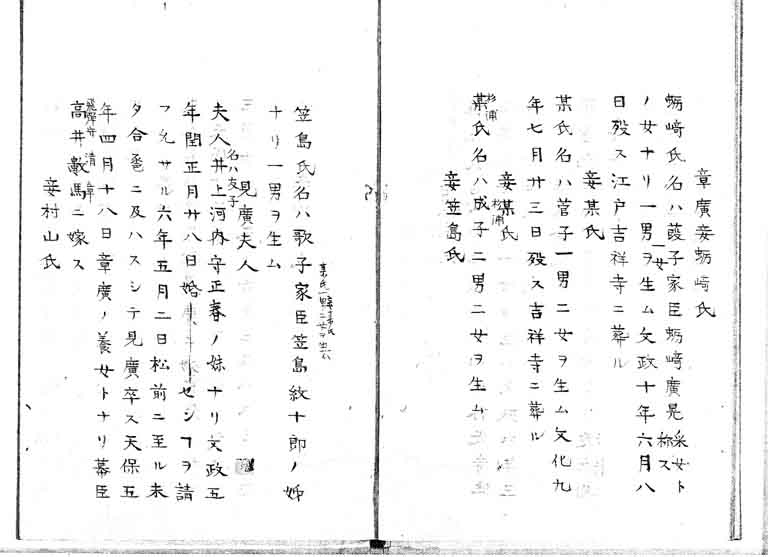 章廣妾蛎﨑氏
蛎﨑氏名ハ葭子家臣蛎﨑廣晃 采女ト称ス
ノ女ナリ一男一女ヲ生ム文政十年六月八
日歿ス江戸吉祥寺ニ葬ル
妾某氏
某氏名ハ菅子一男二女ヲ生ム文化九
年七月廿三日歿ス吉祥寺ニ葬ル
妾某氏 杉浦
杉浦
某氏名ハ成子二男二女ヲ生ム
妾笠島氏
笠島氏名ハ歌子家臣笠島紋十郎ノ姊
ナリ一男ヲ生ム
見廣夫人
名ハ友子
夫人井上河内守正春ノ妹ナリ文政五
年閏正月廿八日婚セシヿヲ請
フ允サル六年五月二日松前ニ至ル未
タ合巹ニ及ハスシテ見廣卒ス天保五
年四月十八日章廣ノ養女トナリ幕臣
飛騨守清
高井ニ嫁ス
妾村山氏